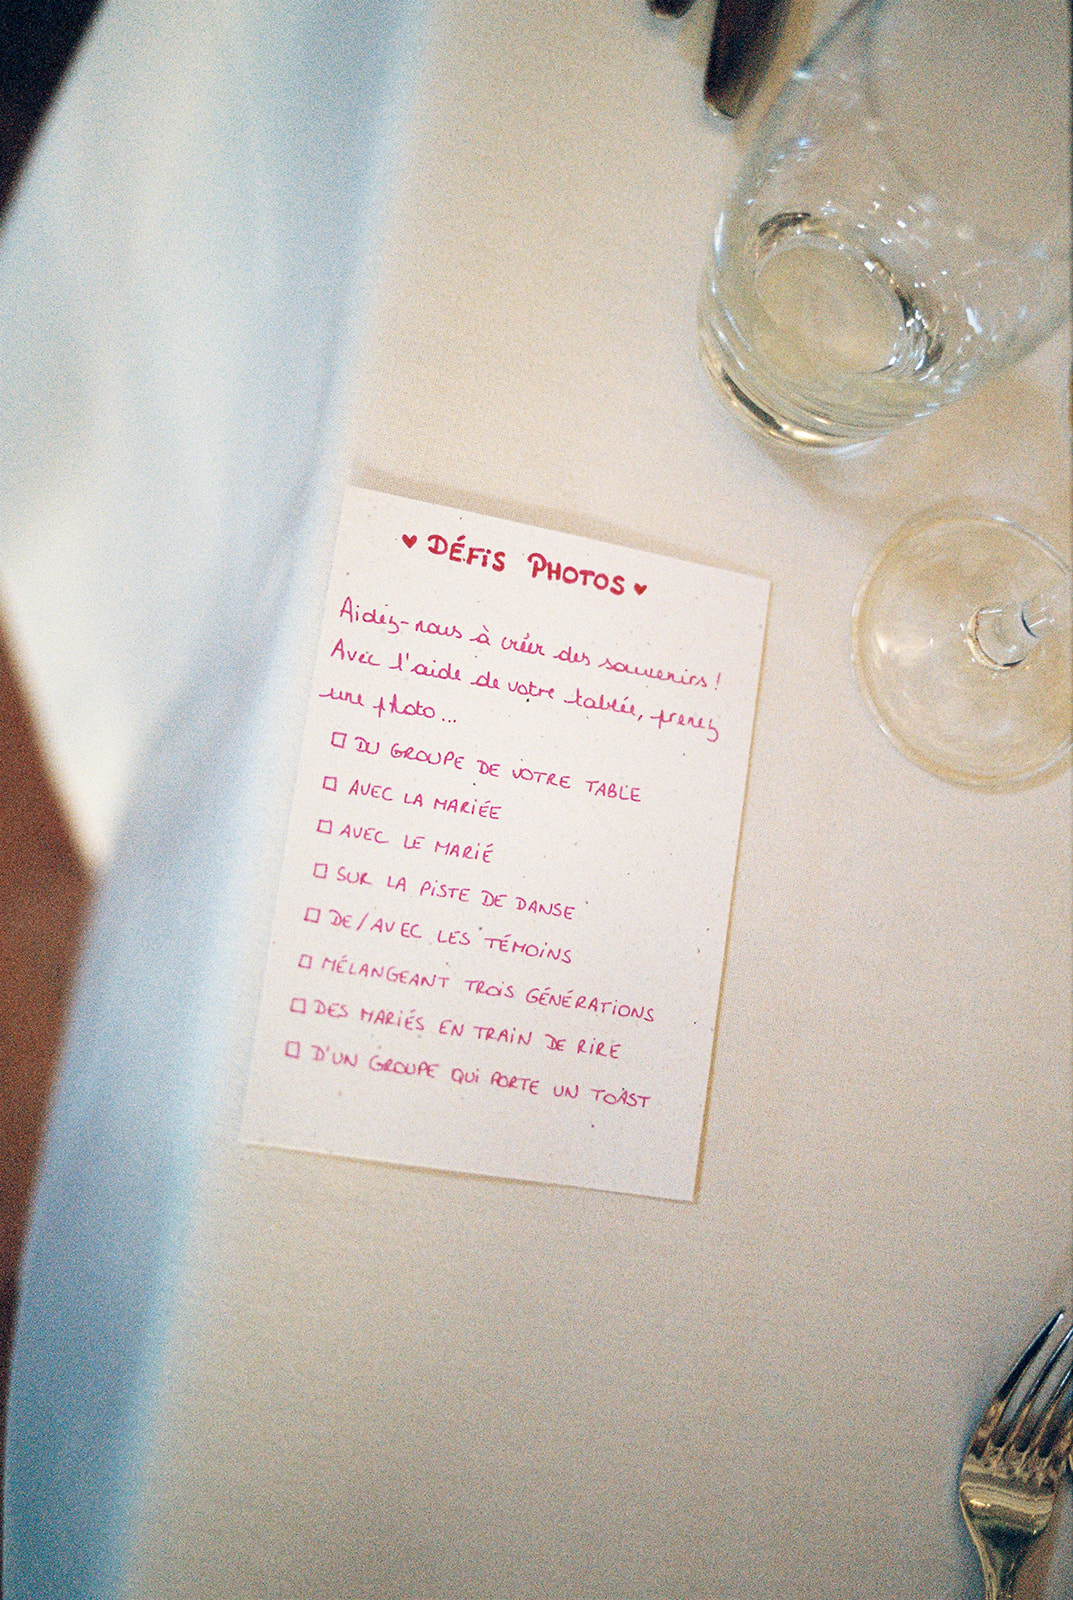 ♥ DÉFIS PHOTOS ♥
Aidez-nous à créer des souvenirs !
Avec l'aide de votre tablée, prenez
une photo...
□ DU GROUPE DE VOTRE TABLE
□ AVEC LA MARIÉE
□ AVEC LE MARIÉ
□ SUR LA PISTE DE DANSE
□ DE/AVEC LES TÉMOINS
□ MÉLANGEANT TROIS GÉNÉRATIONS
□ DES MARIÉS EN TRAIN DE RIRE
□ D'UN GROUPE QUI PORTE UN TOAST